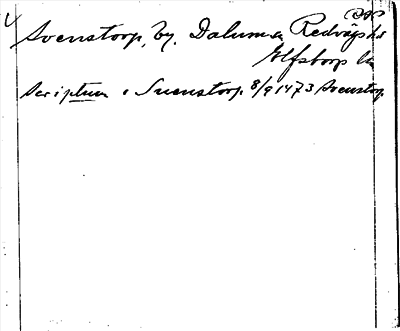 Svenstorp, by. Dalum sn Redvägs hd
Elfsborgs län
Scriptum i Suenstorp 8/9 1473 Svenstorp